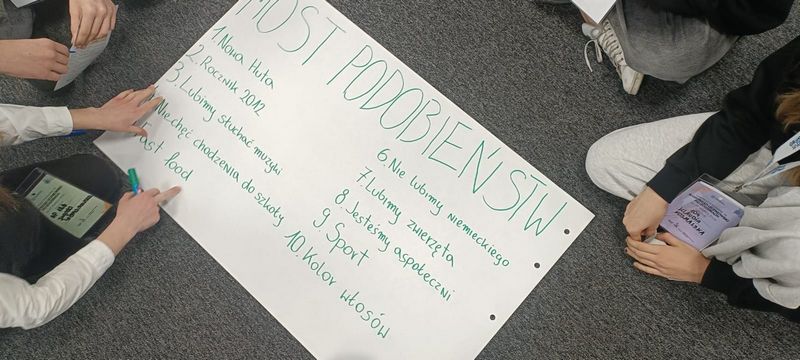 MOST PODOBIEŃSTW
1. Nowa Huta
2. Rocznik 2012
3. Lubimy słuchać muzyki
Niechęć chodzenia do szkoły
Fast food
6. Nie lubimy niemieckiego
7. Lubimy zwierzęta
8. Jesteśmy aspołeczni
9. Sport
10. Kolor włosów